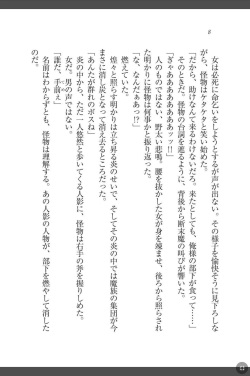 6
女は必死に命乞いをしようとするが声が出ない。その様子を愉快そうに見下ろしな
がら、怪物はケタケタと笑い始めた。
「だから、助けなんて来るわけないだろ。来たとしても、俺様の部下が食って……」
そのときだった。怪物の台詞を遮るように、背後から断末魔の叫びが響いた。
「ぎゃあああああァッ!!」
人のものではない、野太い悲鳴。腰を抜かした女が身を竦ませ、後ろから照らされ
た明かりに怪物は何事かと振り返った。
「な、なんだぁ!?」
燃えていた。
煌々と照らす明かりは立ち昇る炎のせいで、そしてその炎の中では魔族の集団が今
まさに消し炭となって消え去るところだった。
「あんたが群れのボスね」
炎の中から、ただ一人悠然と歩いてくる人影に、怪物は右手の斧を握りしめた。
女だ。男の声ではない。
「誰だ、手前ェ」
名前はわからずとも、怪物は理解する。あの人影の人物が、部下を燃やして消した
のだ。